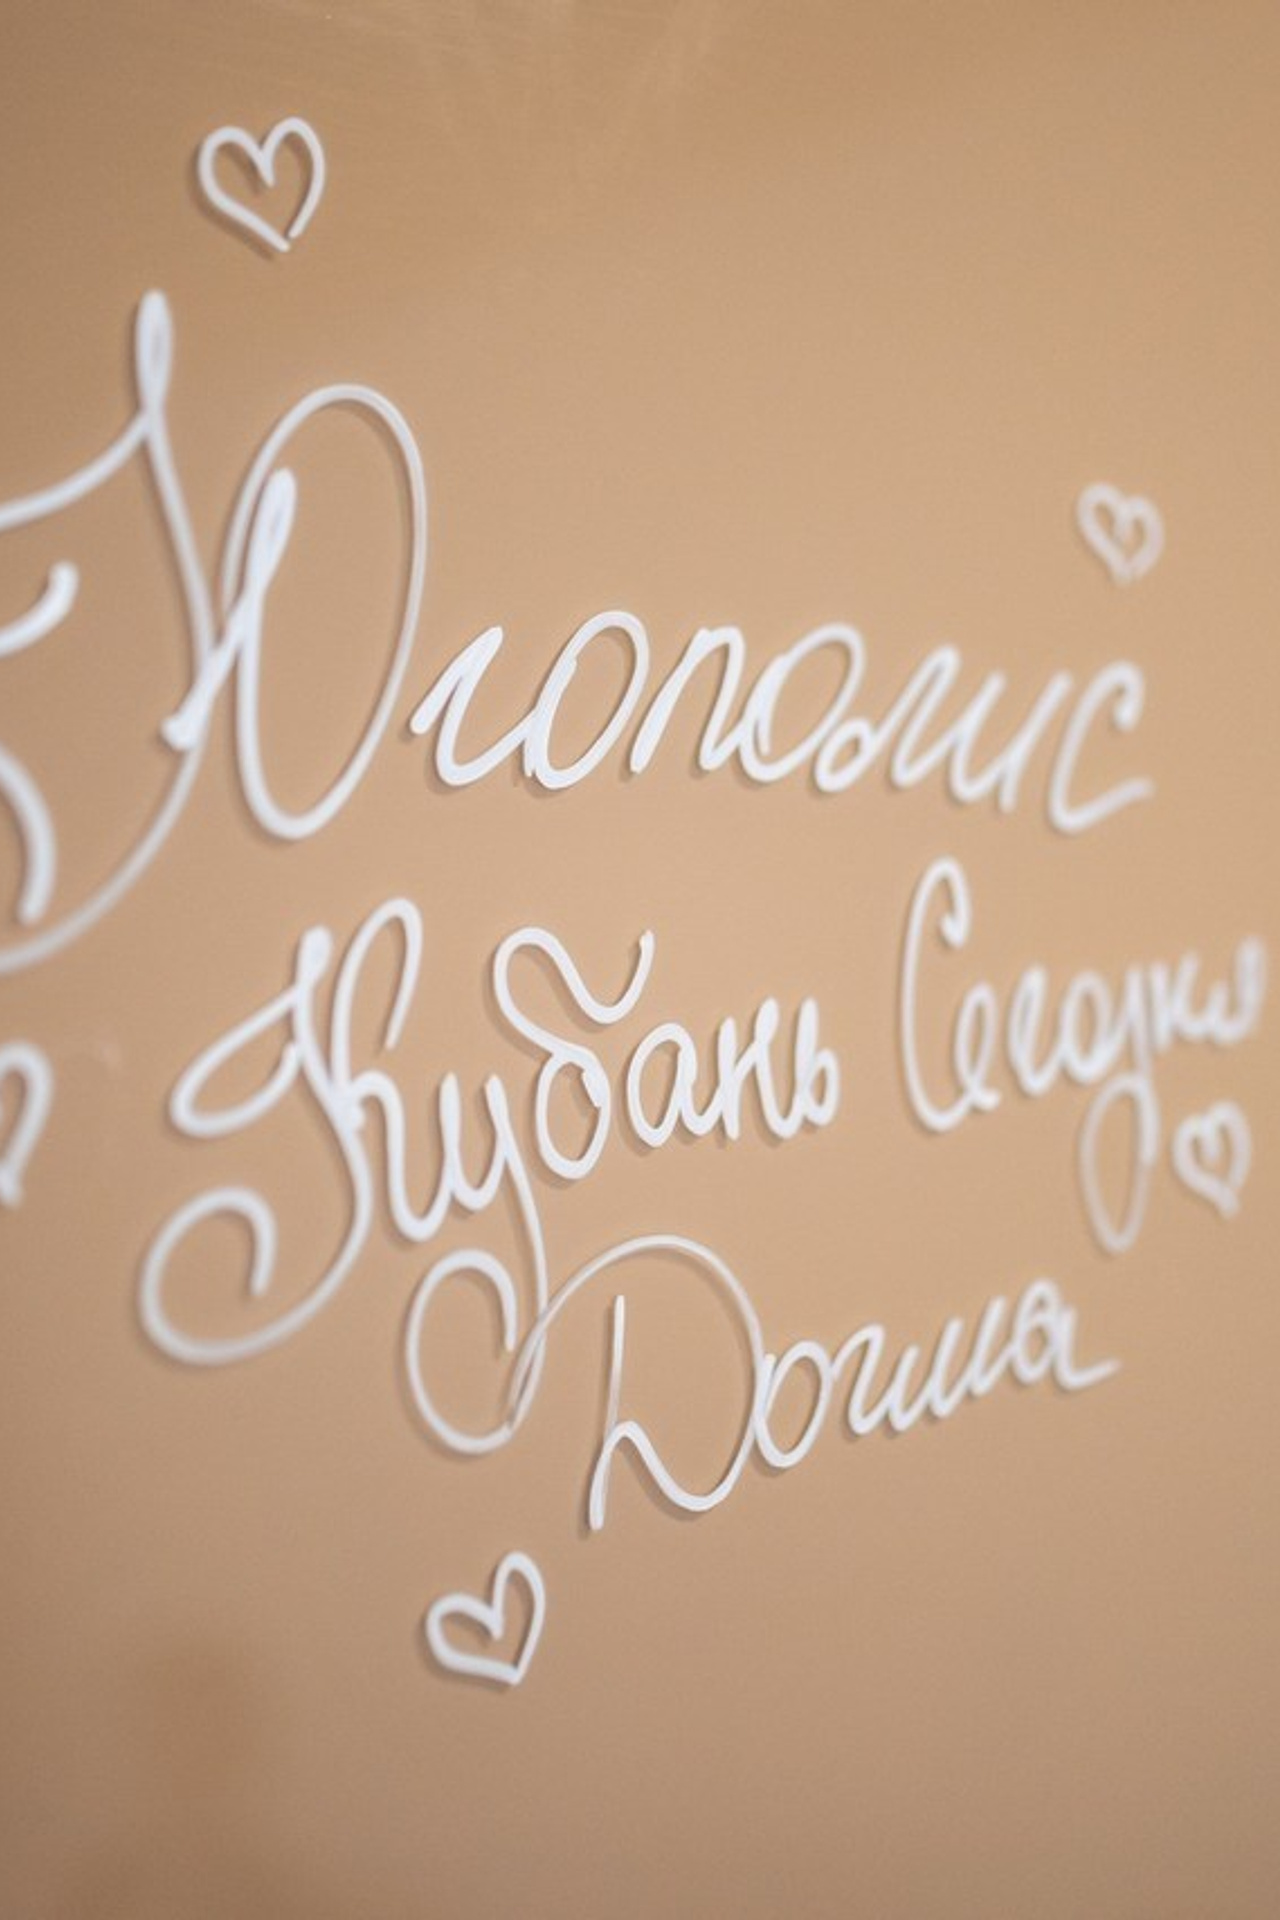 Югополис
Кубань Сегодня
Догма